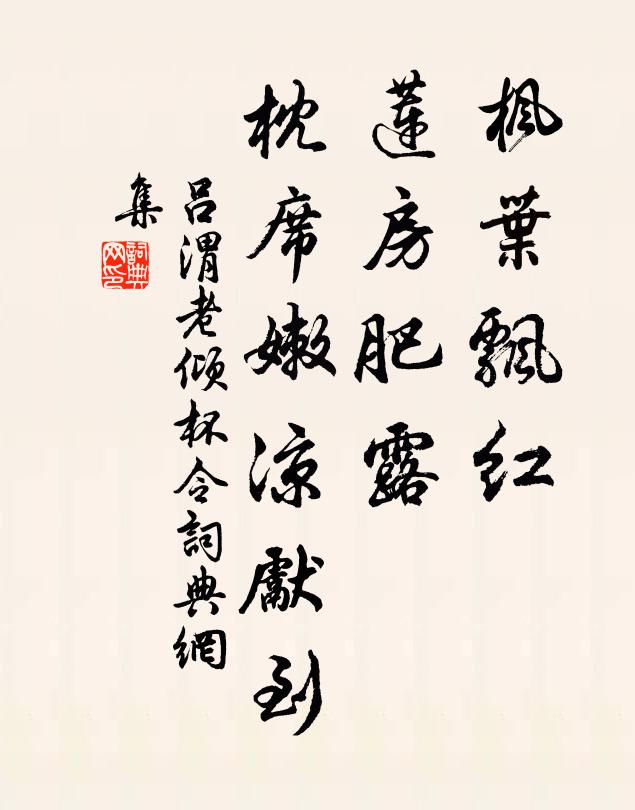 楓葉飄紅
蓮房肥露
枕席嫩涼獻到
呂渭老傾杯令詞典網
集
詞典
网印